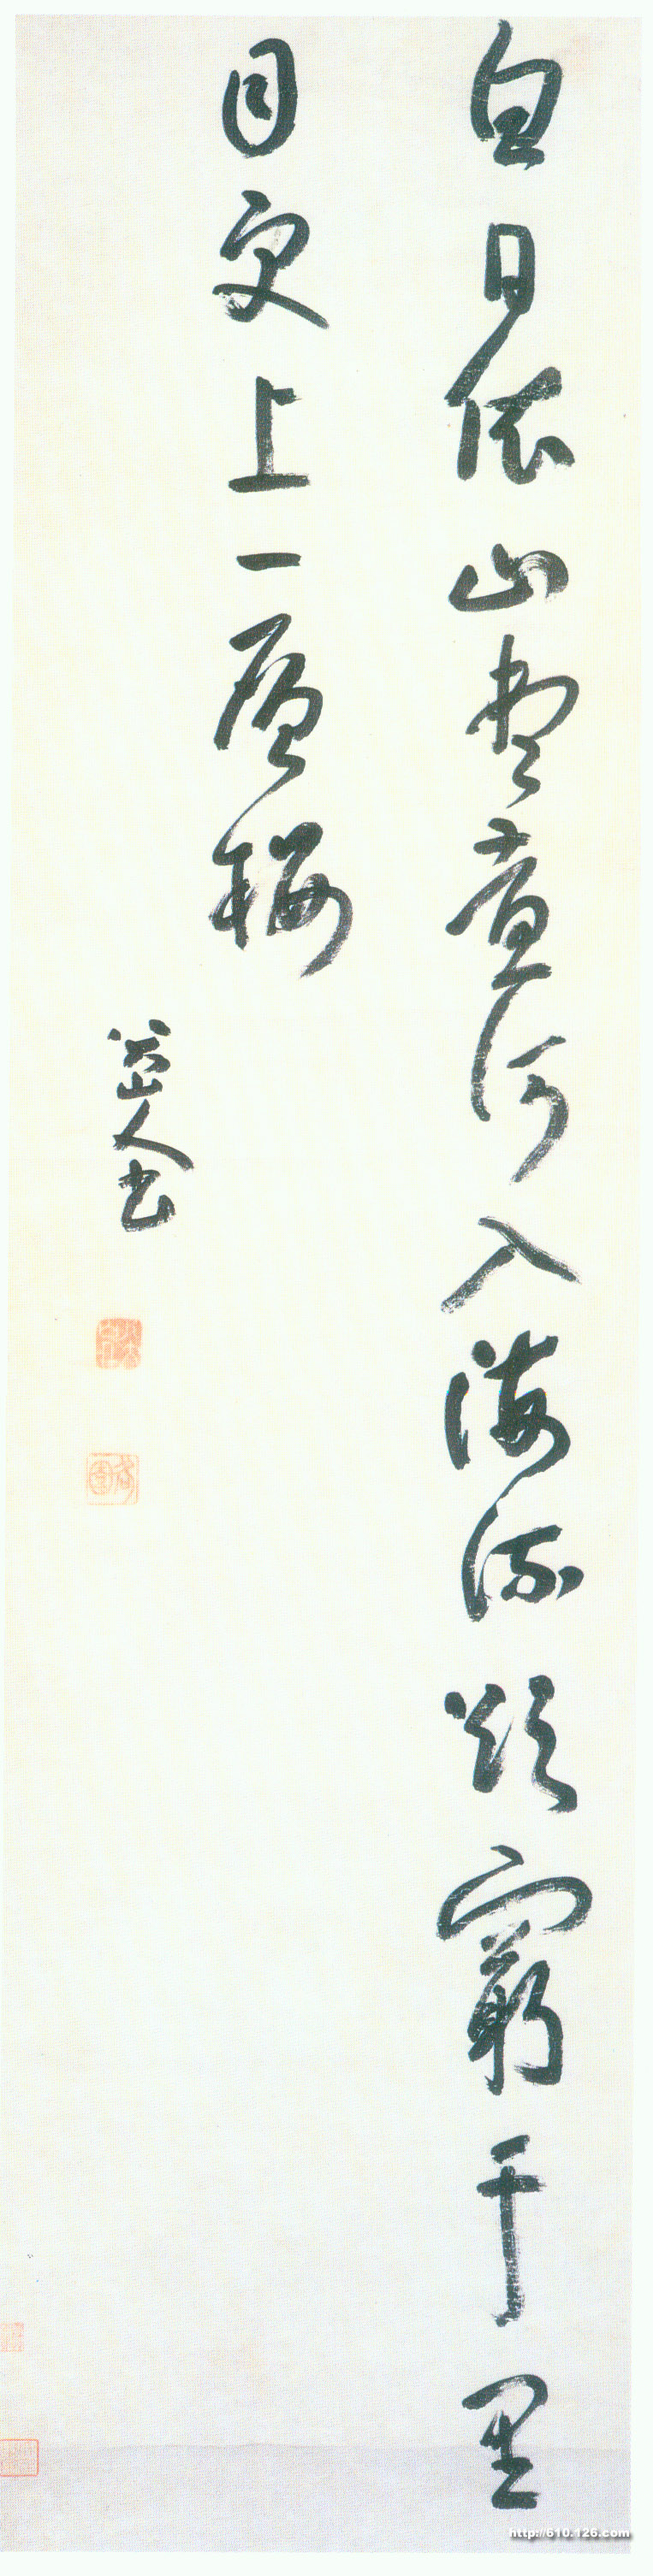 白日依山盡黄河入海流欲窮千里
目更上一層樓
八大山人書
http://610.126.com